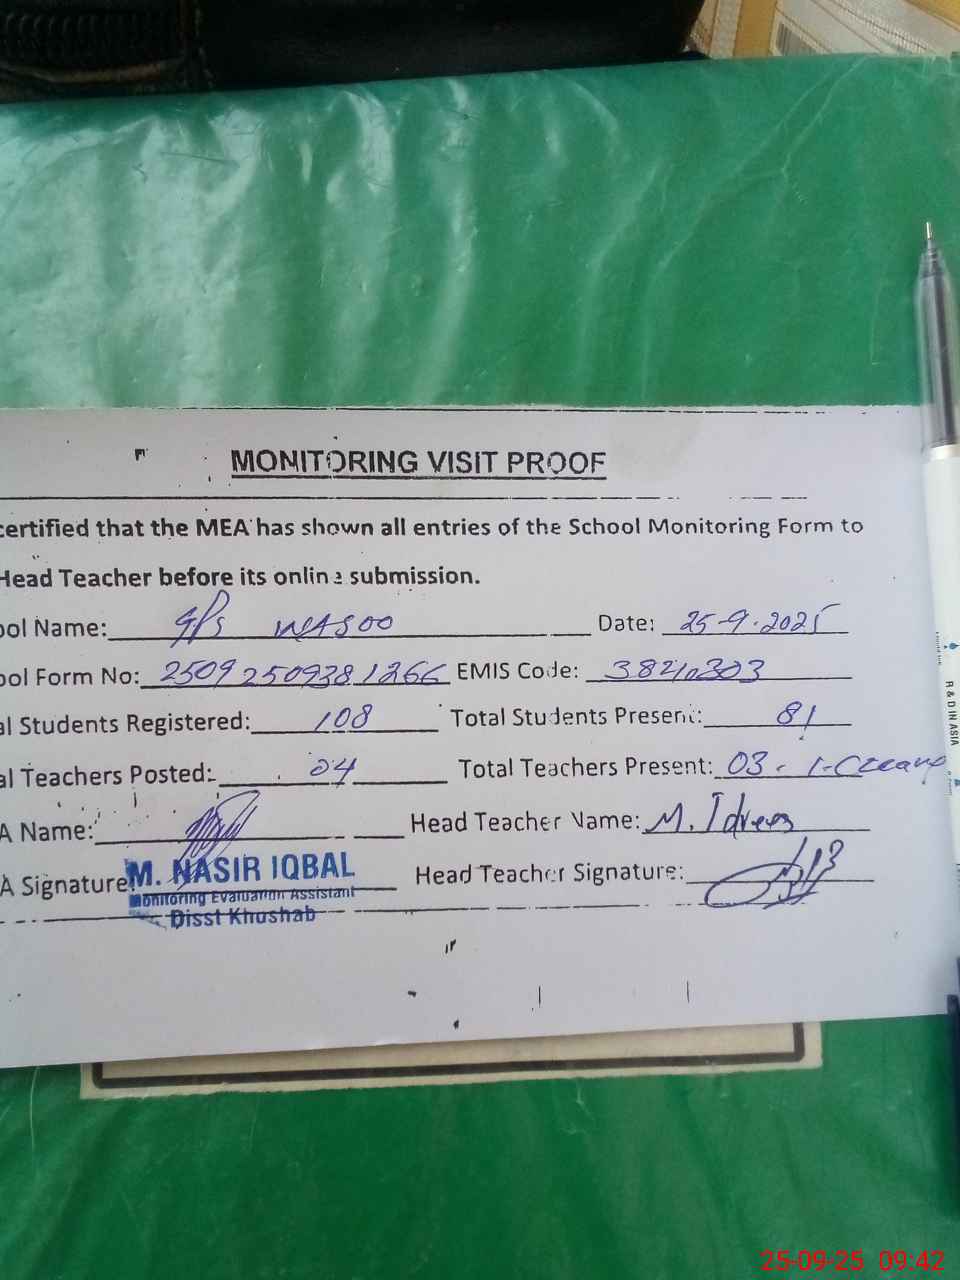 MONITORING VISIT PROOF
certified that the MEA has shown all entries of the School Monitoring Form to
Head Teacher before its online submission.
ool Name: GPS WASOO Date: 25-9-2025
ool Form No: 25092509381266 EMIS Code: 38210303
al Students Registered: 108 Total Students Present: 81
al Teachers Posted: 04 Total Teachers Present: 03 - 1-C Leave
A Name: Head Teacher Name: M. Idrees
A Signature: Head Teacher Signature:
M. NASIR IQBAL
Monitoring Evaluation Assistant
Disst Khushab
R & D IN ASIA
25-09-25 09:42